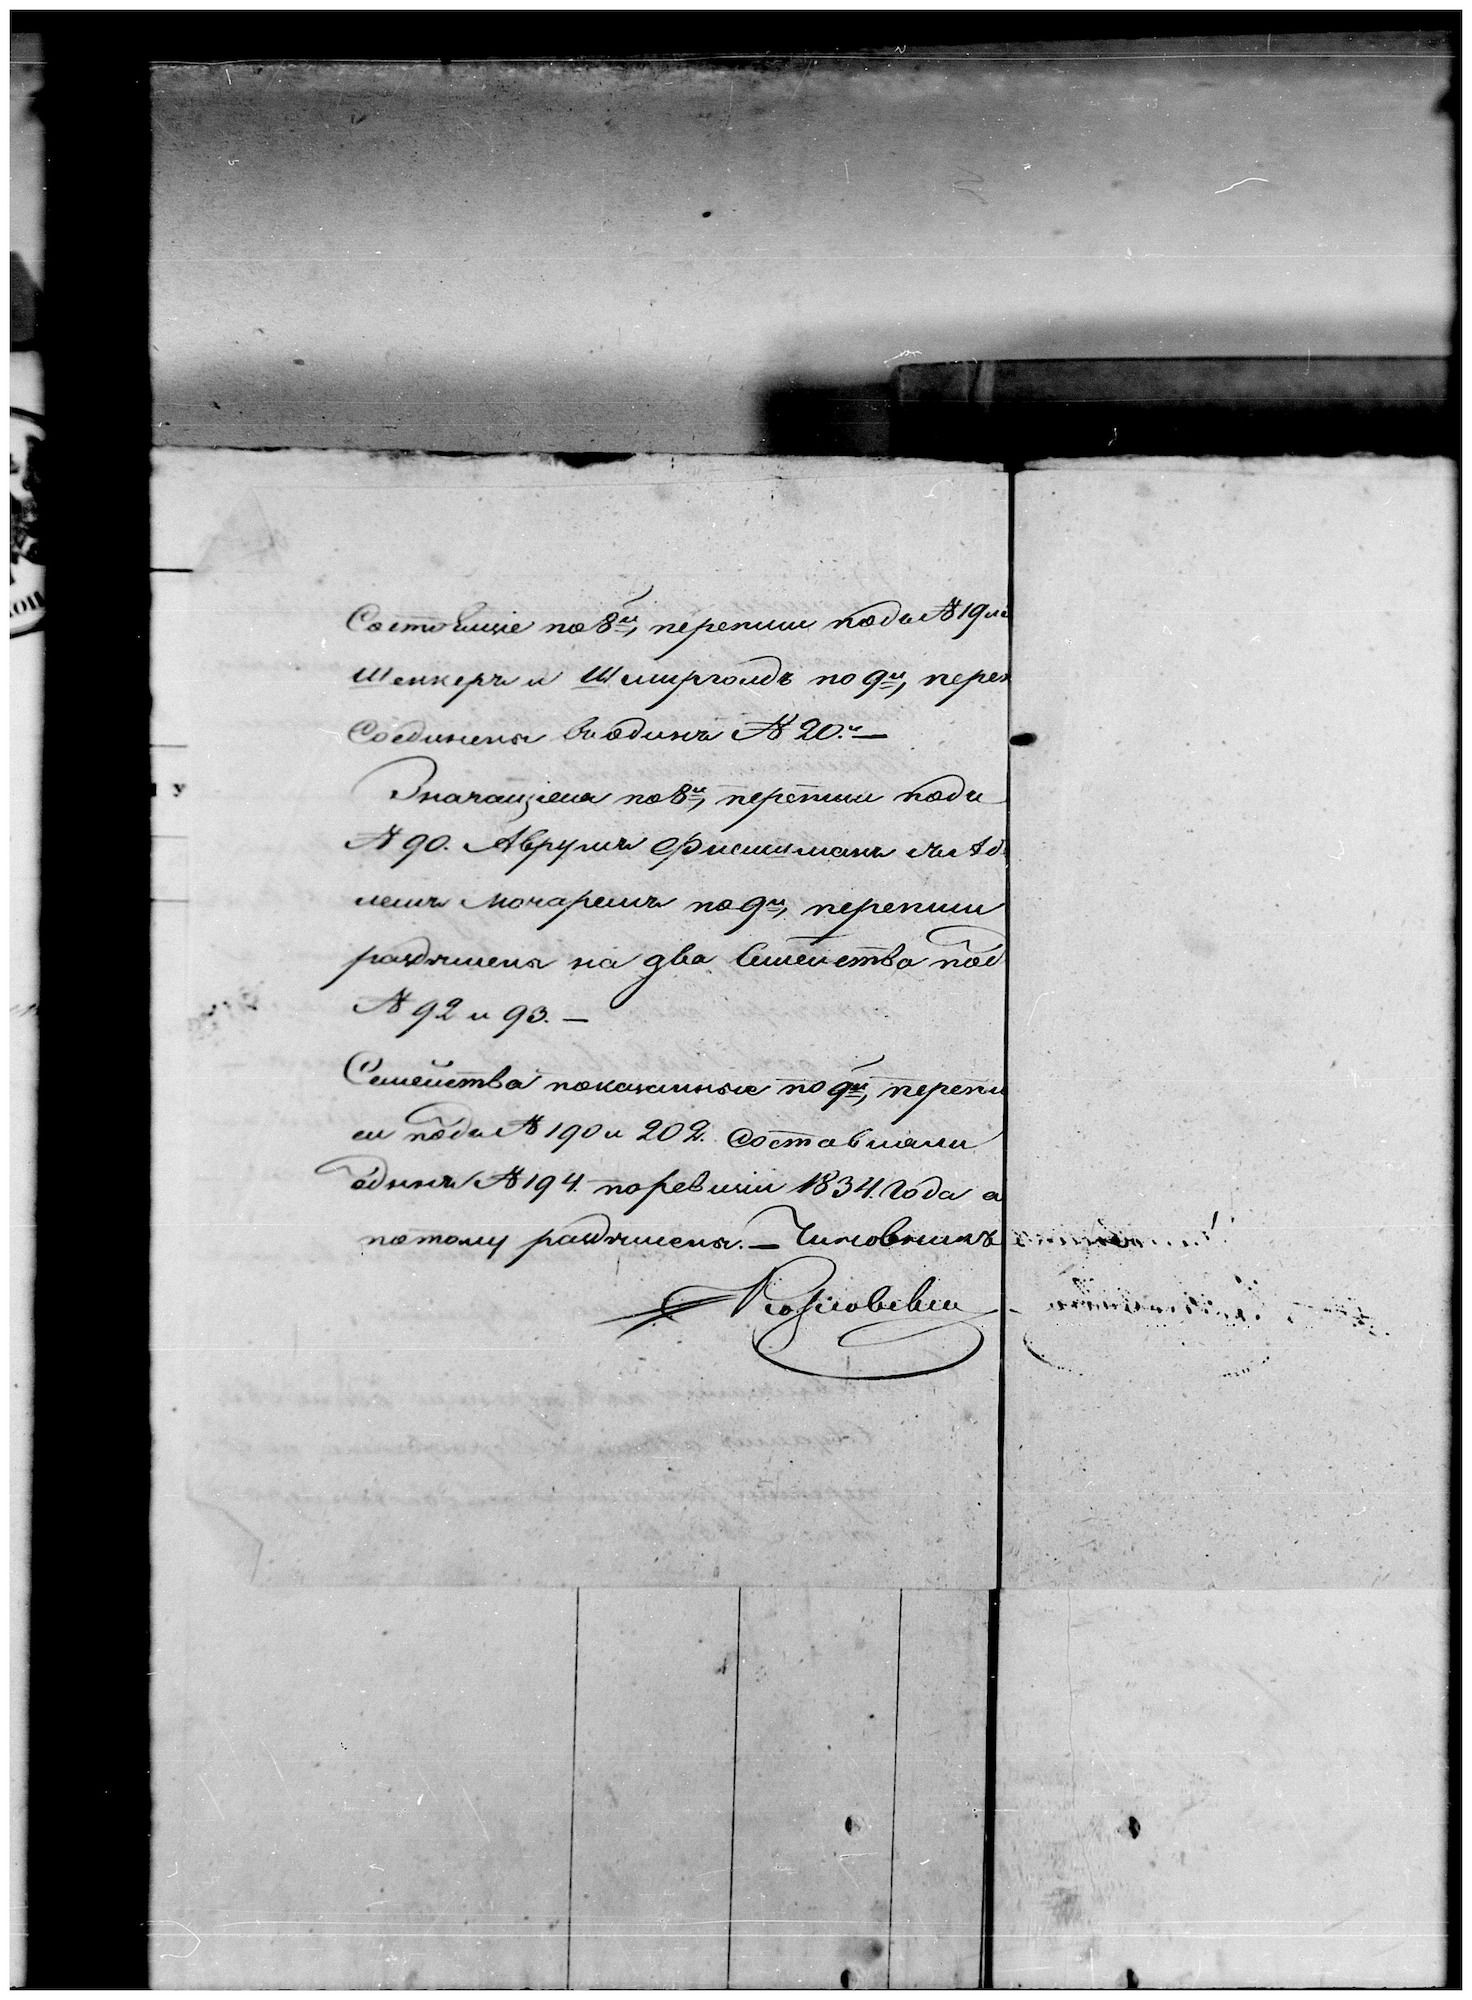 Состовшіе по 8й, переписи подъ № 19
Шенкеръ и Шмирголдъ по 9й, переп
Соединены въ одинъ № 20й —
Значащіеся по 8й, переписи подъ
№ 90. Аврумъ Фишманъ съ
лемъ Мочаремъ по 9й, переписи
раздѣлены на два Семейства под
№ 92 и 93. —
Семейства показанные по 9й, перепи
си подъ № 190 и 202. Составляли
одинъ № 194. по ревизіи 1834. года а
потому раздѣлены. — Чиновникъ